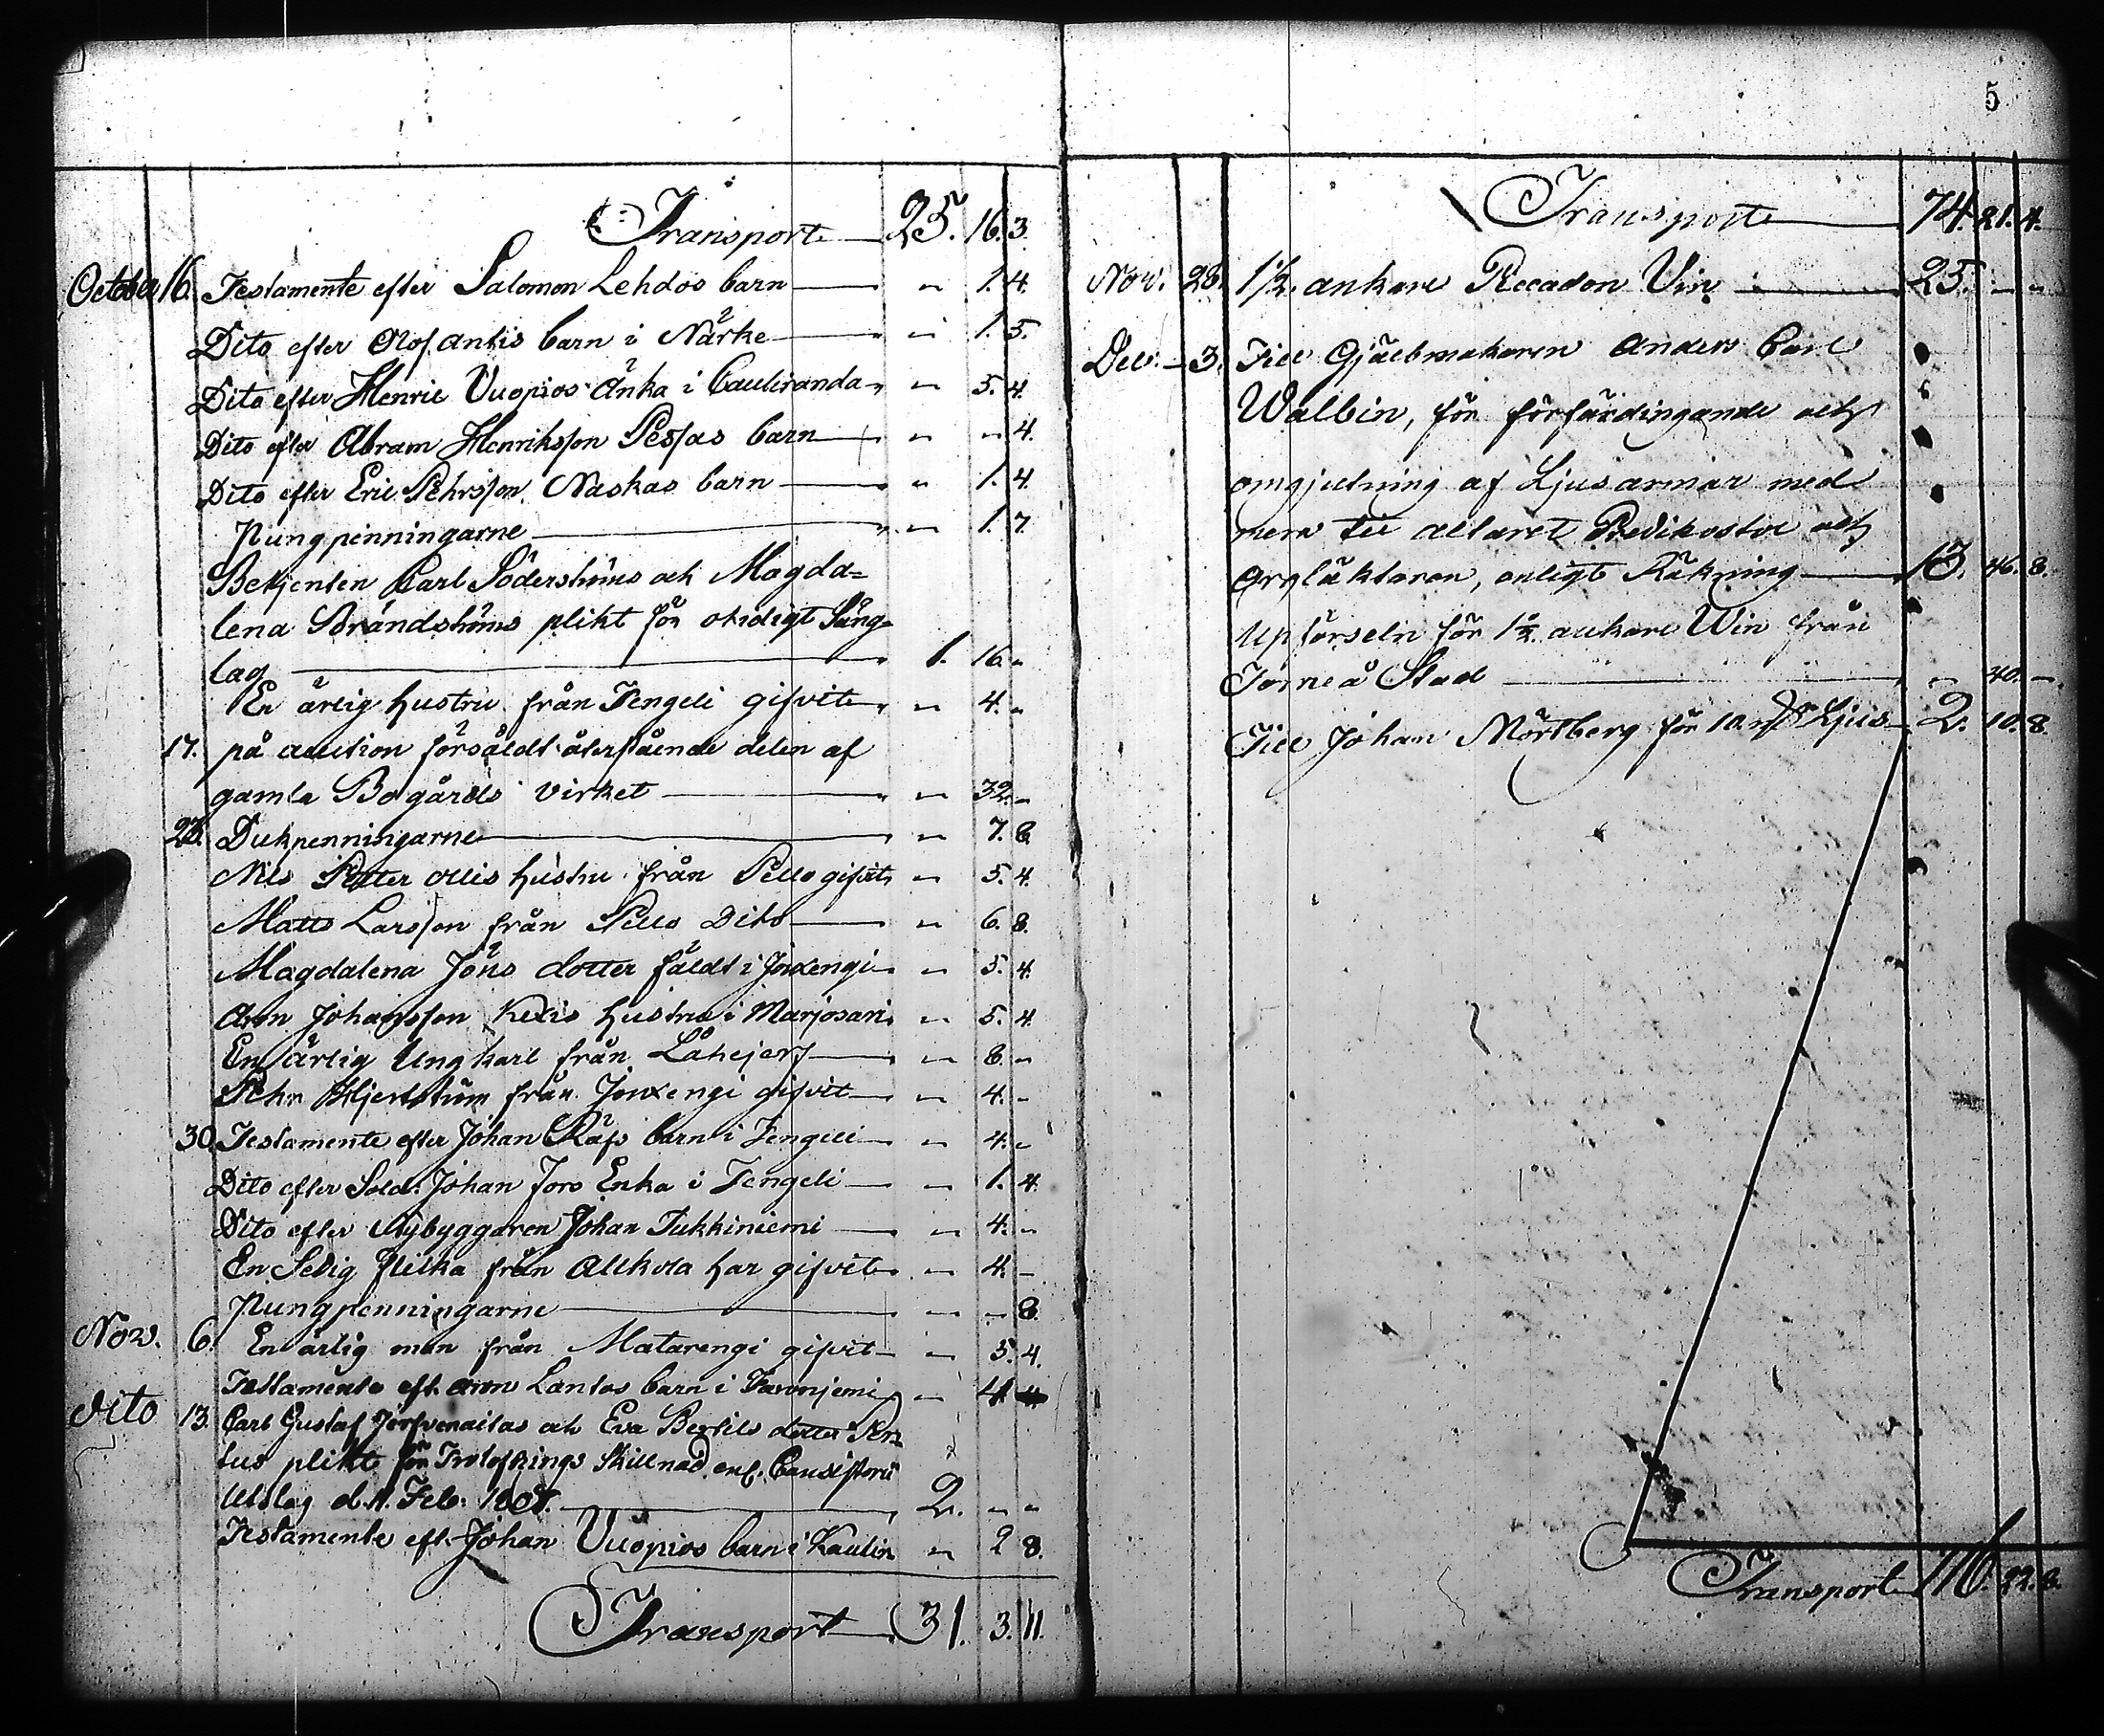 5
Transport 25. 16. 3.
October 16. Testamente efter Salomon Lehdos barn " 1. 4.
Dito efter Olof Antis barn i Närke " 1. 5.
Dito efter Henric Vuopios Änka i Cauliranda " 5. 4.
Dito efter Abram Henriksson Pessas barn " " 4.
Dito efter Eric Pehrsson Naskas barn " 1. 4.
Pungpenningarne " 1. 7.
Betjenten Carl Söderströms och Magda=
lena Brändströms plikt för otidigt Säng=
lag 1. 16. "
En ärlig hustru från Tengeli gifvit " 4. "
17. på auction försåldt återstående delen af
gamla Bogårds virket " 32. "
23. Dukpenningarne " 7. 6.
Nils Petter Ollis hustru från Pello gifvit " 5. 4.
Matts Larsson från Pello Dito " 6. 8.
Magdalena Jöns dotter fäldt i Jouxengi " 5. 4.
Aron Johansson Kexis hustru i Marjosari " 5. 4.
En ärlig Ung karl från Låhejerf " 8. "
Pehr Hjertström från Jouxengi gifvit " 4. "
30. Testamente efter Johan Räfs barn i Tengeli " 4. "
Dito efter Sold. Johan Fors Enka i Tengeli " 1. 4.
Dito efter Nybyggaren Johan Tukkiniemi " 4. "
En Sedig flicka från Alkola har gifvit " 4. "
Pungpenningarne " " 8.
Nov. 6. En ärlig man från Matarengi gifvit " 5. 4.
Testamente eft. Aron Lantos barn i " 4.
Dito 13. Carl Gustaf och Eva Bertils dotter
plikt för Trolofnings Skillnad, enl. Consistorii
Utslag d. 11. Feb. 2. " "
Testamente eft. Johan Vuopios barn i Kaulir. " 2 8.
Transport 31. 3. 11.
Transport 74. 21. 4.
Nov. 28. 1½. ankare Vin 25. " "
Dec. 3. Till Gjälbmakaren Anders Carl
Walbin, för förfärdingande och
omgjutning af Ljusarmar med
mera till altaret Predikostol och
Orgläktaren, enligt Räkning 13. 46. 8.
Upförseln för 1½ ankare Win från
Torneå Stad " 40. "
Till Johan Mörtberg för 10. ℔ Ljus 2. 10. 8.
Transport 116. 22. 8.